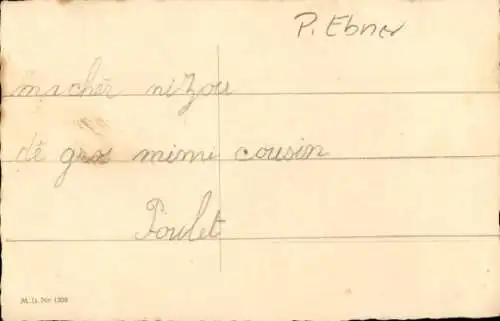 P. Ebner
macher nizou
dé gros mimi cousin
Poulet
M. D. Nr 1309